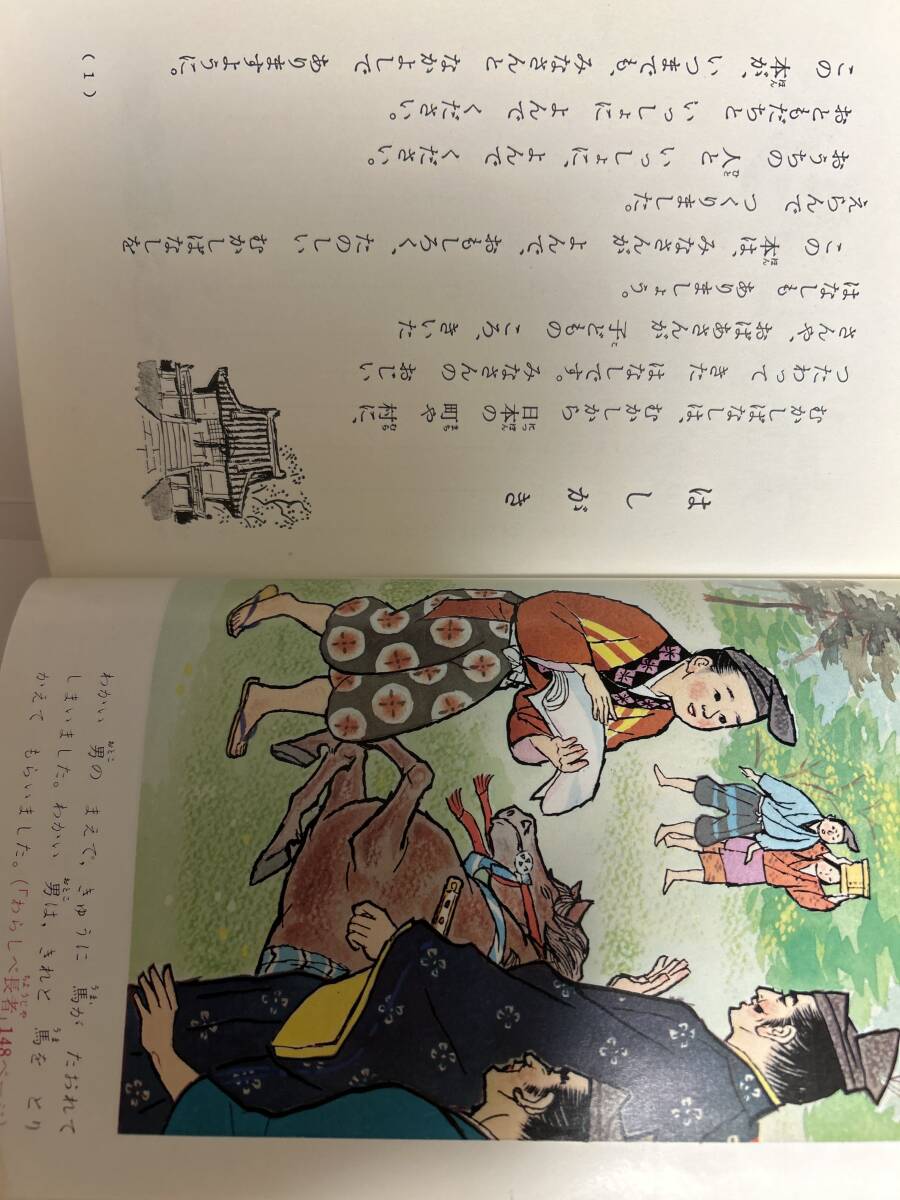 はしがき
むかしばなしは、むかしから 日本の 町や 村に、
つたわって きた はなしです。みなさんの おじい
さんや、おばあさんが 子どもの ころ、きいた
はなしも ありましょう。
この 本は、みなさんが よんで、おもしろく、たのしい むかしばなしを
えらんで つくりました。
おうちの 人と いっしょに、よんで ください。
おともだちと いっしょに よんで ください。
この 本が、いつまでも、みなさんと なかよしで ありますように。
(1)
わかい 男の まえで、きゅうに 馬が たおれて
しまいました。わかい 男は、きれと 馬を とり
かえて もらいました。(「わらしべ長者」148ページ)